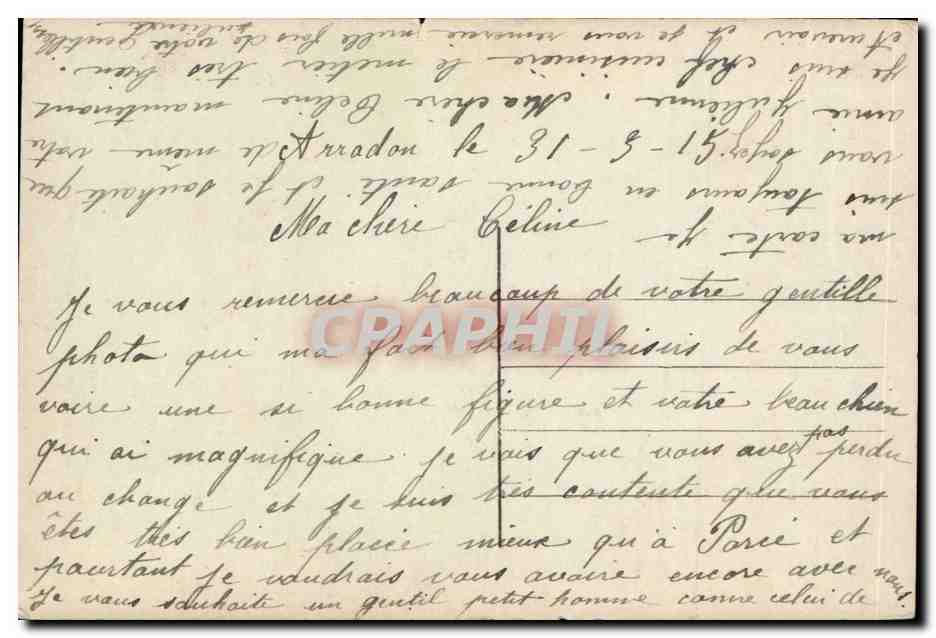 Arradon le 31-5-15
Ma chère Céline
Je vous remercie beaucoup de votre gentille
photo qui ma fait bien plaisirs de vous
voire une si bonne figure et votre beau chien
qui ai magnifique je vois que vous avez pas perdu
au change et je suis très contente que vous
êtes très bien placée mieux qu'à Parie et
pourtant je voudrais vous avoire encore avec nous.
Je vous souhaite un gentil petit homme comme celui de
ma carte Je
suis toujours en bonne santé et je souhaite que
vous soyez de même votre
amie Julienne. Ma chère Céline maintenant
je suis chef cuisinière le métier très bien.
et je vous remercie mille fois de votre gentille
Julienne
CPAPHIL